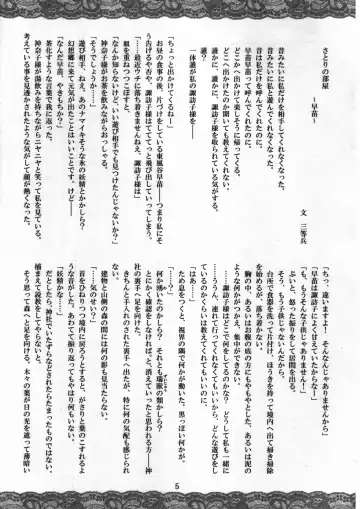 さとりの部屋
～早苗～
文　三等兵
昔みたいに私だけを相手してくれなくなった。
昔みたいに私と遊んでくれなくなった。
昔は私だけを呼んでくれたのに。
早苗早苗って呼んでくれたのに。
どこかへ出かけて楽しそうに帰ってくる。
どこに出かけたのか聞いても教えてくれない。
誰かに、誰かに、諏訪子様を取られている気がするのに。
誰？
一体誰が諏訪子様を――
「ちょっと出かけてくるねー」
お昼の食事の後、片づけをしている東風谷早苗――つまり私にそ
う告げるや否や、諏訪子様はててってと飛び出していってしまう。
「……最近ウチに落ち着きませんねえ、諏訪子様は」
皿を重ねつつこぼすと、
「なんか知らないけど、いい遊び相手でも見つけたんじゃないか？」
神奈子様がお茶を飲みながらおっしゃる。
「そうでしょうか……」
遊び相手って、あのナマイキそうな氷の妖精とかかしら？
幻想郷に来て元気になったことはいいことです。けど――
「なんだ早苗、やきもちか？」
神奈子様が湯飲みを持ちながらニヤニヤと笑って私を見ている。
考えている事を見透かされたような気がして顔が熱くなった。
「ちっ、違いますよ！　そんなんじゃありませんから」
「早苗は諏訪子によく甘えていたからなー」
「も、もうそんな子供じゃありません！」
そう、もう子供じゃないんだから。
ぷいと、怒った振りをして居間を出る。
台所で食器を洗って片付け、ほうきを持って境内へ出て掃き掃除
を始めるが、落ち着かない。
胸の中、あるいはお腹の底の方にもやもやとした、あるいは泥の
ような何かがうごめいて、集中ができない。
……諏訪子様はどこへ行ったのかな？　どうして私も一緒に
……ううん、連れて行ってくれなくてもいいから、どんな遊びをし
ているのかくらいは教えてくれてもいいのに。
「はあ……」
ため息をつくと、視界の隅で何かが動いた。黒っぽい何かが。
何か湧いたのかしら？　それとも瑞獣の類かしら？
とにかく確認をしなければと消えていったと思われる方――神
社の裏手へ足を向けた。
きちんと手入れのされた裏手へ出たが、特に何の気配も感じられ
ない。
建物と山側の森の間には何の影も見当たらない。
「……気のせい？」
首をひねりつつ境内に戻ろうとすると、がさりと葉のこすれるよ
うな音がした。あわてて振り返ってもやはり何もいない。
「妖精かな……」
だとしたら、神社でいたずらなどされたらたまったものではない。
捕まえて説教をしてやらないと。
そう思って森へと足を向ける。木々の葉が日の光を遮って薄暗い
5